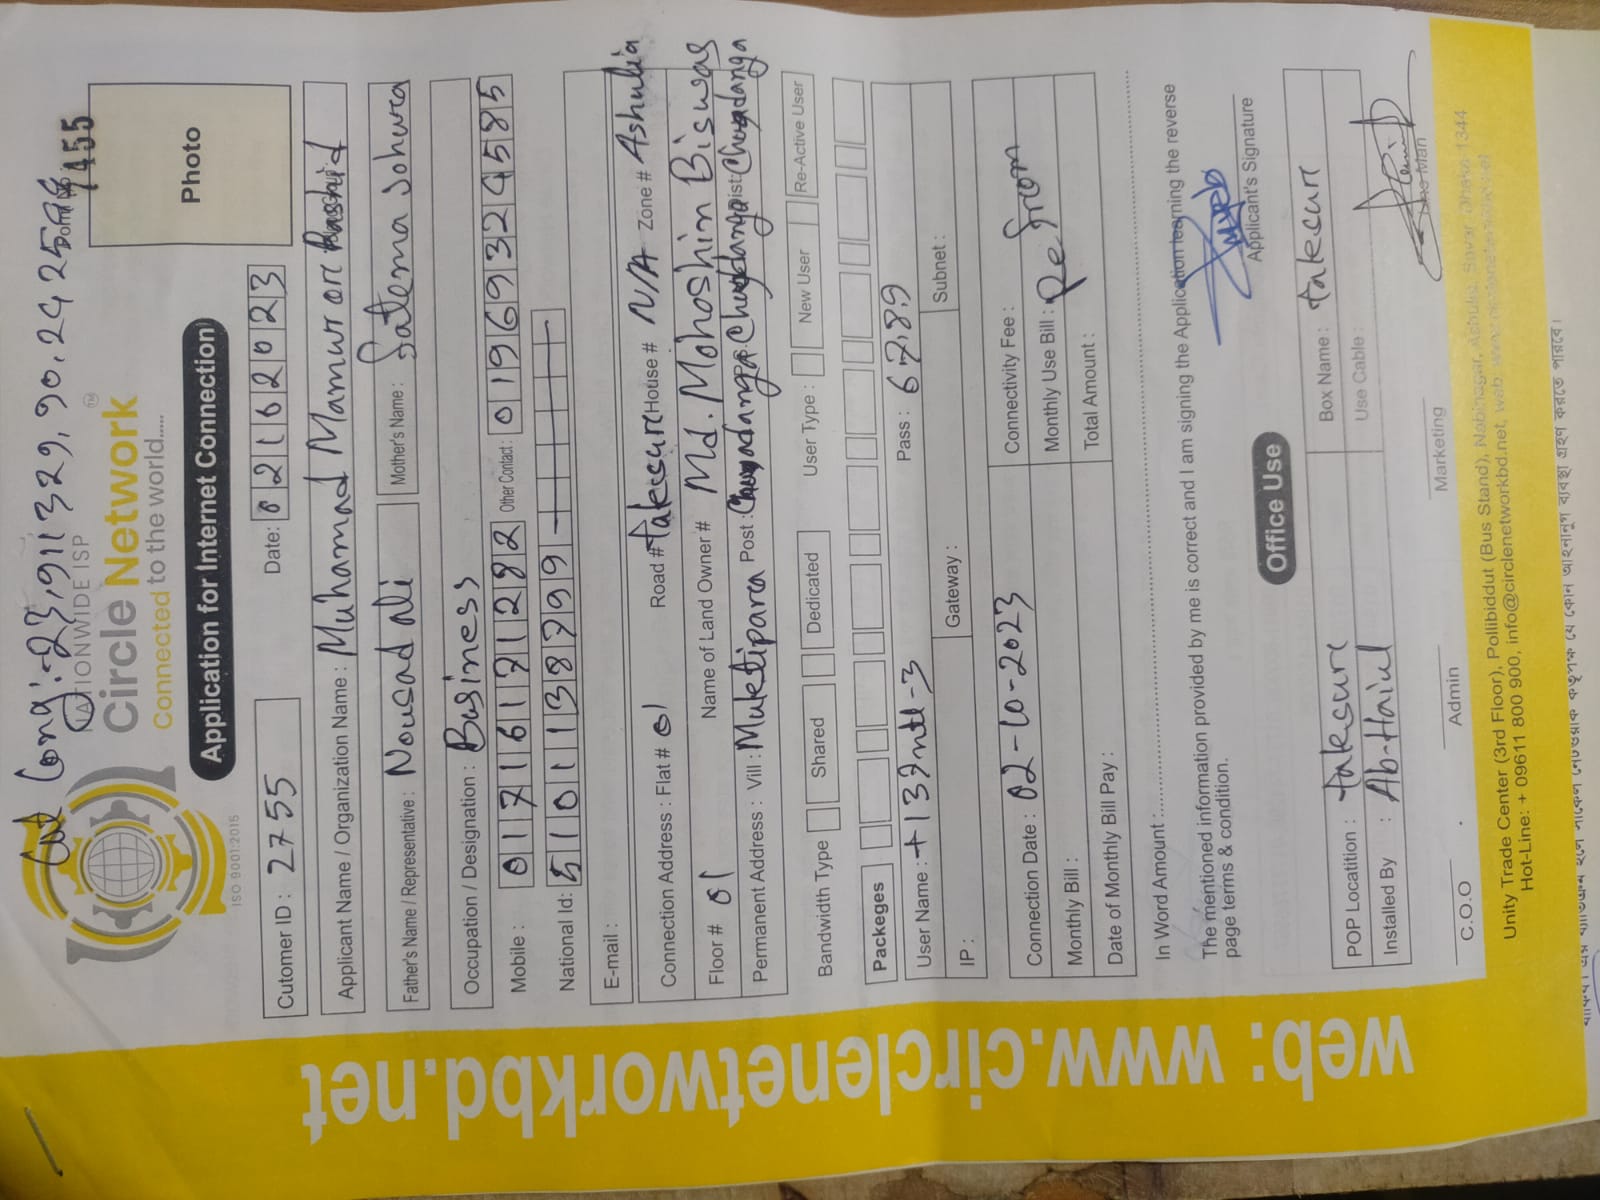 Lat Long:-23,911329,90.2425598
Form No 1455
NATIONWIDE ISP
Circle Network™
Connected to the world.....
ISO 9001:2015
Photo
Application for Internet Connection
Cutomer ID : 2755 Date: 02102023
Applicant Name / Organization Name : Muhamad Mamur or Rashid
Father's Name / Representative : Nousad ali Mother's Name : Fatema Johura
Occupation / Designation : Business
Mobile : 01716171282 Other Contact: 01969324585
National Id: 5101138799
E-mail :
Connection Address : Flat # 01 Road # taksure House # N/A Zone # Ashulia
Floor # 01 Name of Land Owner # Md. Mohoshin Biswas
Permanent Address : Vill : Muktipara Post : Chuadanga Chuadanga Dist: Chuadanga
Bandwidth Type Shared Dedicated User Type : New User Re-Active User
Packeges
User Name : t139ntl-3 Pass : 6789
IP : Gateway : Subnet :
Connection Date : 02-10-2023 Connectivity Fee :
Monthly Bill : Monthly Use Bill : Re from
Date of Monthly Bill Pay : Total Amount :
In Word Amount :
The mentioned information provided by me is correct and I am signing the Application learning the reverse
page terms & condition.
Applicant's Signature
Office Use
POP Locatition : taksure Box Name : taksure
Installed By : Ab-Haiul Use Cable :
C.O.O Admin Marketing Line Man
Unity Trade Center (3rd Floor), Pollibiddut (Bus Stand), Nabinagar, Ashulia, Savar, Dhaka-1344
Hot-Line: + 09611 800 900, info@circlenetworkbd.net, web: www.circlenetworkbd.net
web: www.circlenetworkbd.net